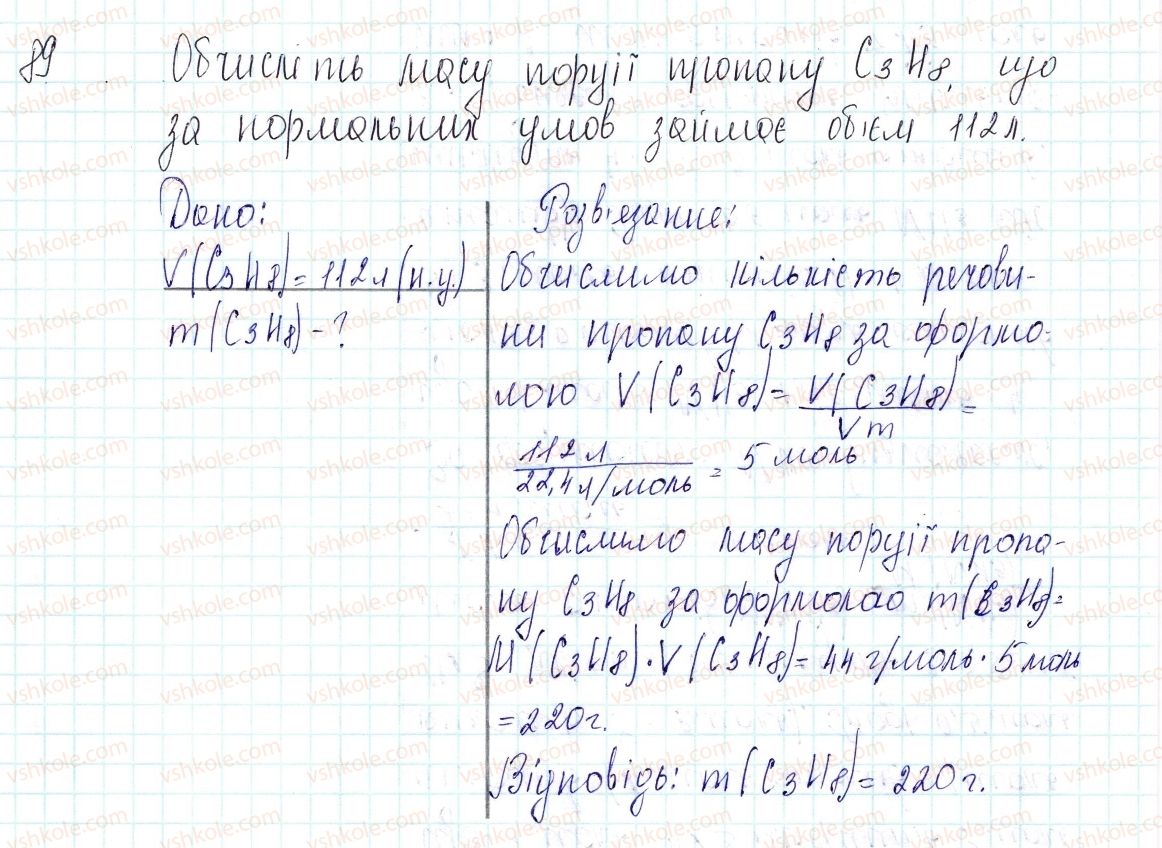 89 Обчисліть масу порції пропану C3H8, що
за нормальних умов займає об'єм 112 л.
Дано:
V(C3H8) = 112 л (н.у.)
m(C3H8) - ?
Розв'язание:
Обчислимо кількість речови-
ни пропану C3H8 за формо-
лою V(C3H8) = V(C3H8) =
Vm
112 л
22,4 л/моль = 5 моль
Обчислимо масу порції пропа-
ну C3H8 за формолою m(C3H8) =
M(C3H8) · V(C3H8) = 44 г/моль · 5 моль
= 220 г.
Відповідь: m(C3H8) = 220 г.
vshkole.com